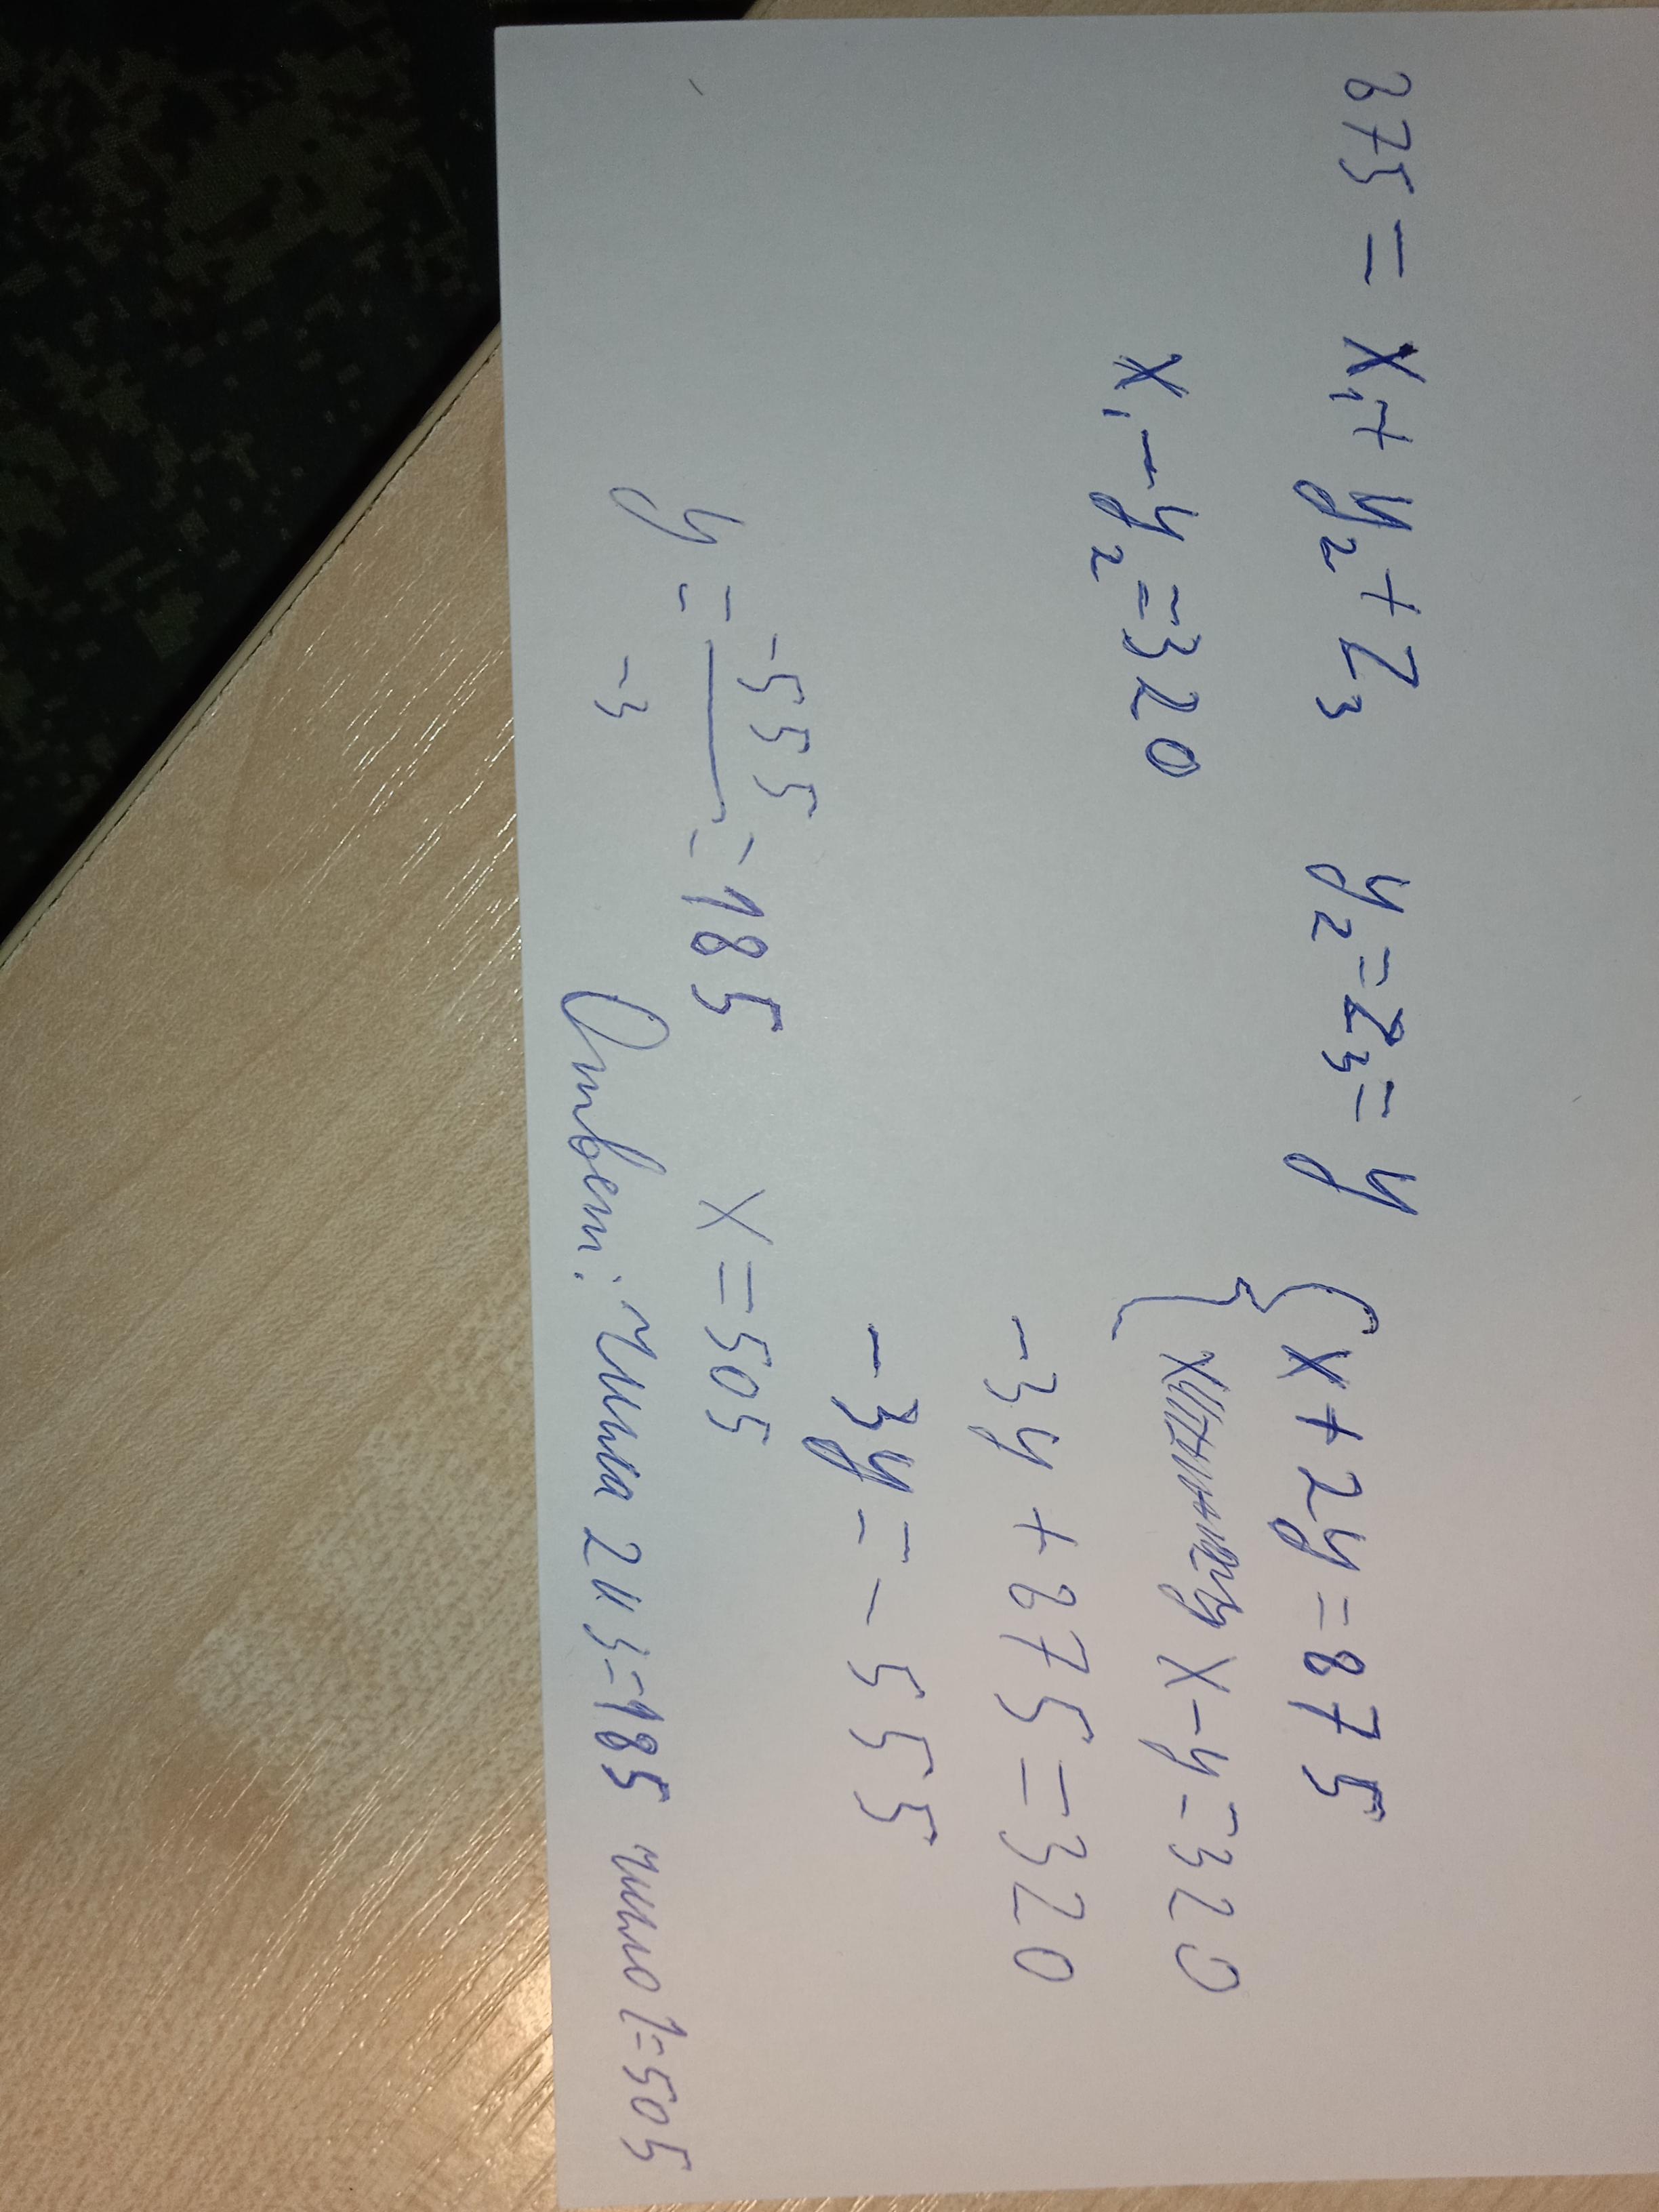 875 = x₁ + y₂ + z₃ y₂ = z₃ = y { x + 2y = 875
x₁ - y₂ = 320 x - y = 320
-3y + 875 = 320
-3y = -555
y = -555/-3 = 185 x = 505
Ответ: числа 2 и 3 = 185 число 1 = 505